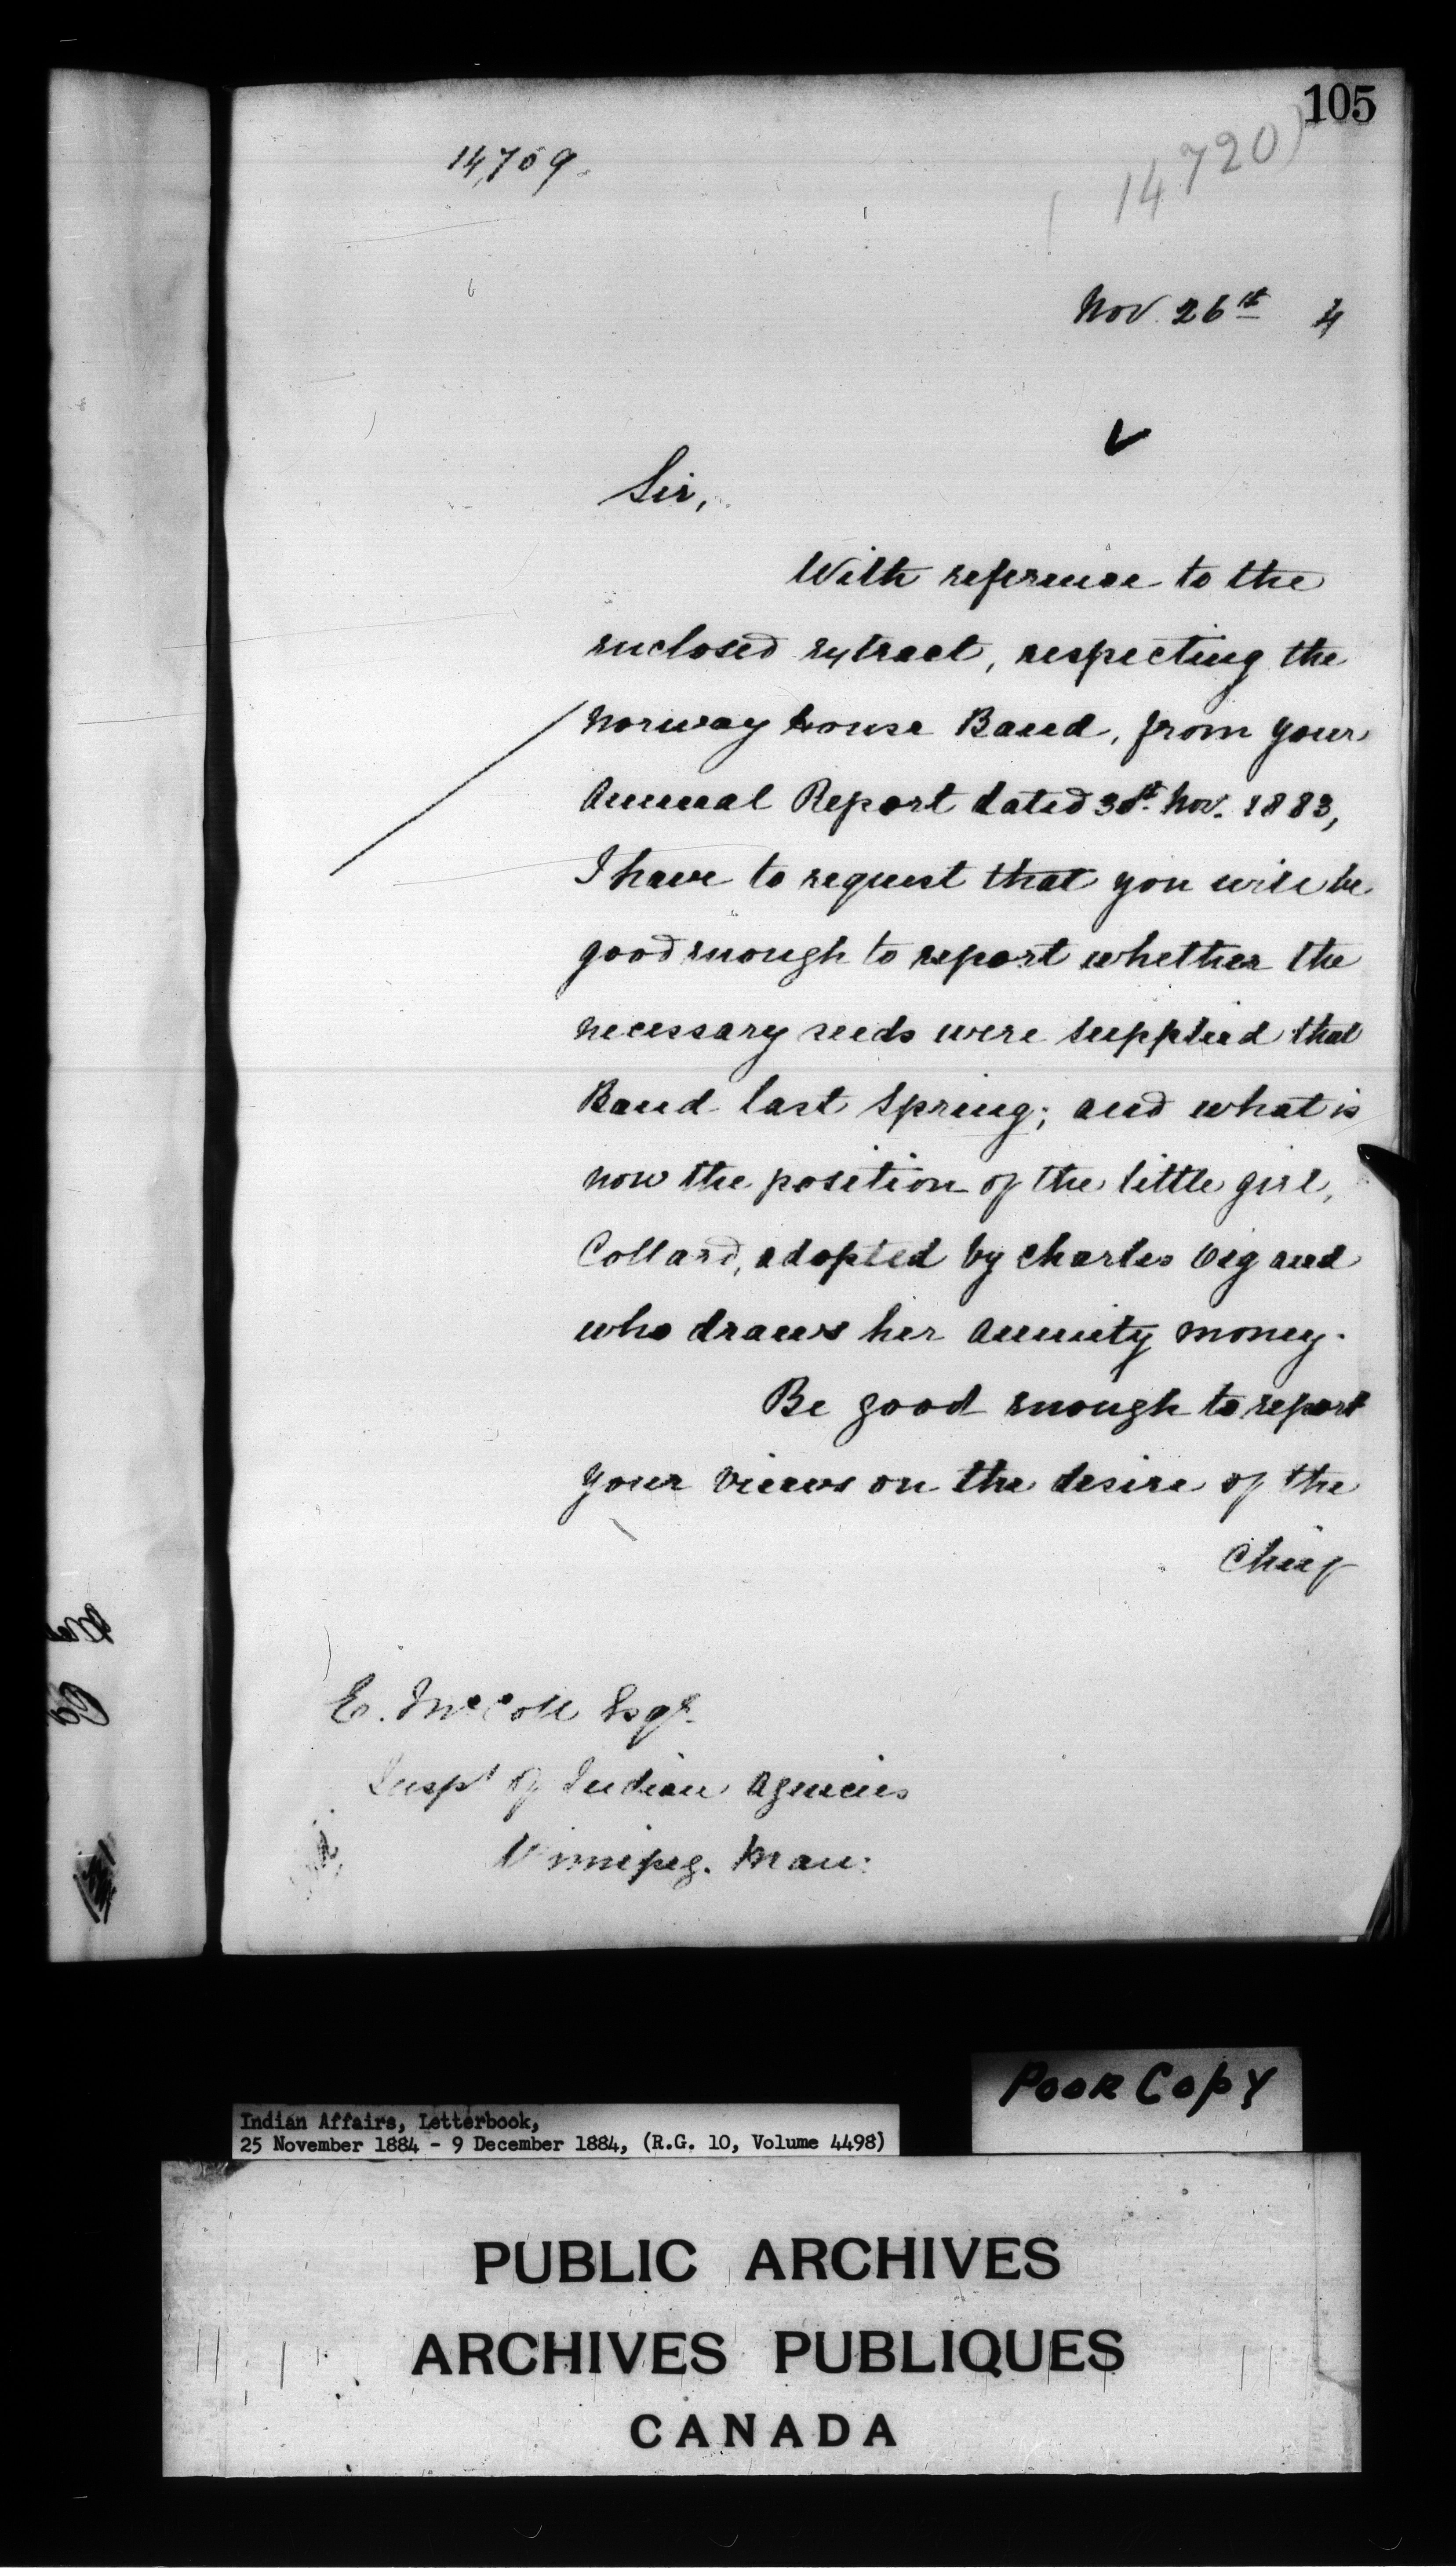 105
14,709.
14720
Nov. 26th 4
Sir,
With reference to the
enclosed extract, respecting the
Norway house Band, from your
Annual Report dated 30th Nov. 1883,
I have to request that you will be
good enough to report whether the
necessary seeds were supplied that
Band last Spring; and what is
now the position of the little girl,
Collard, adopted by Charles Big and
who draws her annuity money.
Be good enough to report
your views on the desire of the
Chief
E. McColl Esqr.
Inspr of Indian Agencies
Winnipeg. Man:
Poor Copy
Indian Affairs, Letterbook,
25 November 1884 - 9 December 1884, (R.G. 10, Volume 4498)
PUBLIC ARCHIVES
ARCHIVES PUBLIQUES
CANADA